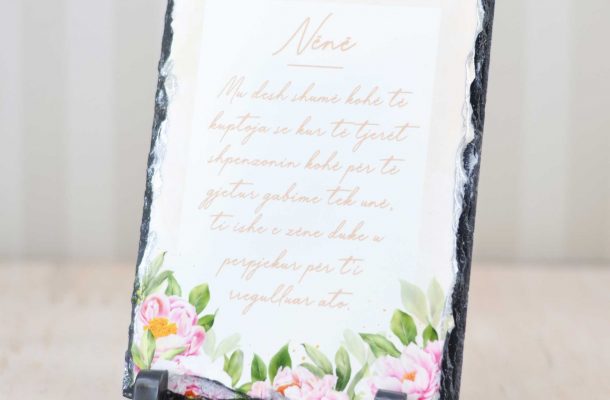 Nënë
Mu desh shumë kohë të
kuptoja se kur të tjerët
shpenzonin kohë për të
gjetur gabime tek unë,
ti ishe e zënë duke u
perpjekur për t'i
rregulluar ato.